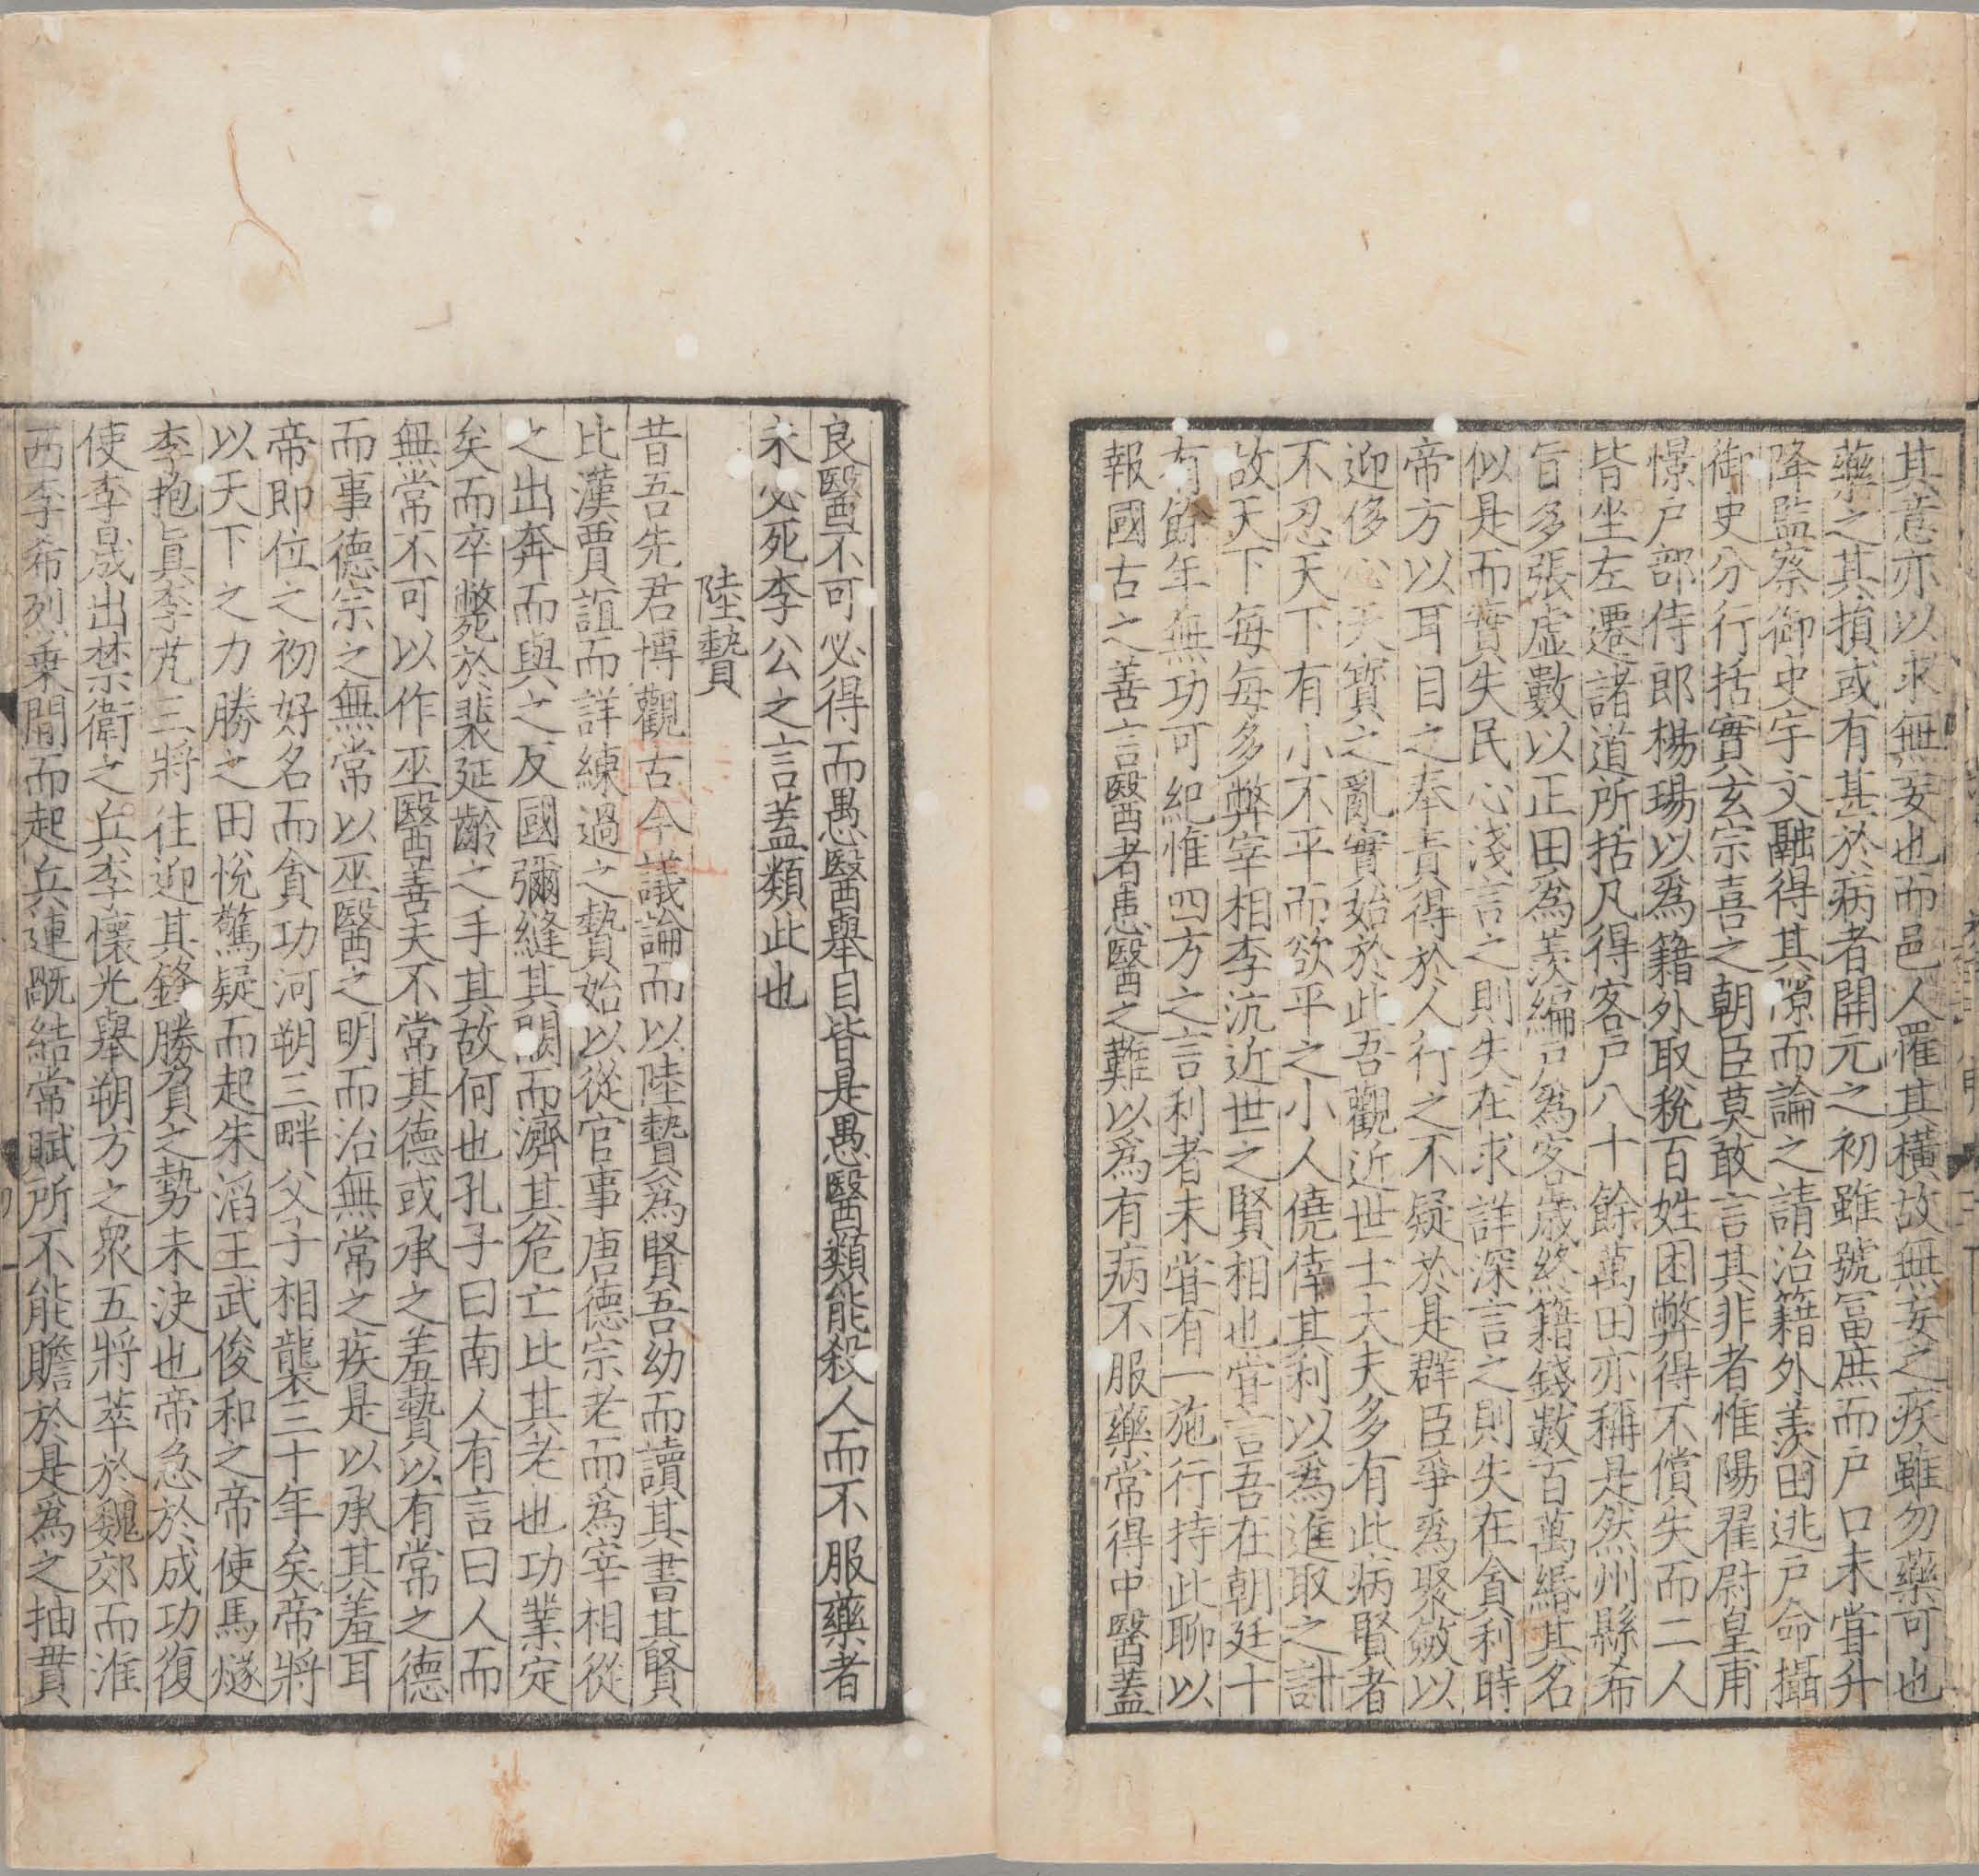 其意亦以求無妄也而邑人罹其橫故無妄之疾雖勿藥可也
藥之其損或有甚於病者開元之初雖號冨庶而戶口未甞升
降監察御史宇文融得其隙而論之請治籍外羨田逃戶命攝
御史分行括實玄宗喜之朝臣莫敢言其非者惟陽翟尉皇甫
憬戶部侍郎楊瑒以爲籍外取稅百姓困弊得不償失而二人
皆坐左遷諸道所括凡得客戶八十餘萬田亦稱是然州縣希
旨多張虛數以正田爲羨編戶爲客歲終籍錢數百萬緡其名
似是而實失民心淺言之則失在求詳深言之則失在貪利時
帝方以耳目之奉責得於人行之不疑於是群臣爭爲聚斂以
迎侈心天寶之亂實始於此吾觀近世士大夫多有此病賢者
不忍天下有小不平而欲平之小人僥倖其利以爲進取之計
故天下每每多弊宰相李沆近世之賢相也甞言吾在朝廷十
有餘年無功可紀惟四方之言利者未甞有一施行持此聊以
報國古之善言醫者患醫之難以爲有病不服藥常得中醫蓋
良醫不可必得而愚醫舉自皆是愚醫類能殺人而不服藥者
未必死李公之言蓋類此也
陸贄
昔吾先君博觀古今議論而以陸贄爲賢吾幼而讀其書其賢
比漢賈誼而詳練過之贄始以從官事唐德宗老而爲宰相從
之出奔而與之反國彌縫其闕而濟其危亡比其老也功業定
矣而卒斃於裴延齡之手其故何也孔子曰南人有言曰人而
無常不可以作巫醫善夫不常其德或承之羞贄以有常之德
而事德宗之無常以巫醫之明而治無常之疾是以承其羞耳
帝即位之初好名而貪功河朔三畔父子相襲三十年矣帝將
以天下之力勝之田悅驚疑而起朱滔王武俊和之帝使馬燧
李抱眞李艽三將往迎其鋒勝負之勢未決也帝急於成功復
使李晟出禁衛之兵李懷光舉朔方之衆五將萃於魏郊而淮
西李希烈乗間而起兵連旤結常賦所不能贍於是爲之抽貫